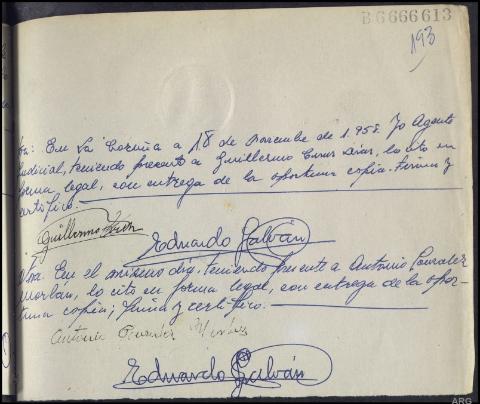 B6666613
193
En La Coruña a 18 de Noviembre de 1.958. Yo Agente
Judicial, teniendo presente a Guillermo Díaz, lo cito en
forma legal, con entrega de la oportuna copia. Firma y
certifico.
Guillermo
Eduardo Galván
En el mismo día, teniendo presente a Antonio González
Morlán, lo cito en forma legal, con entrega de la opor-
tuna copia; firma y certifico.
Antonio
Eduardo Galván
ARG